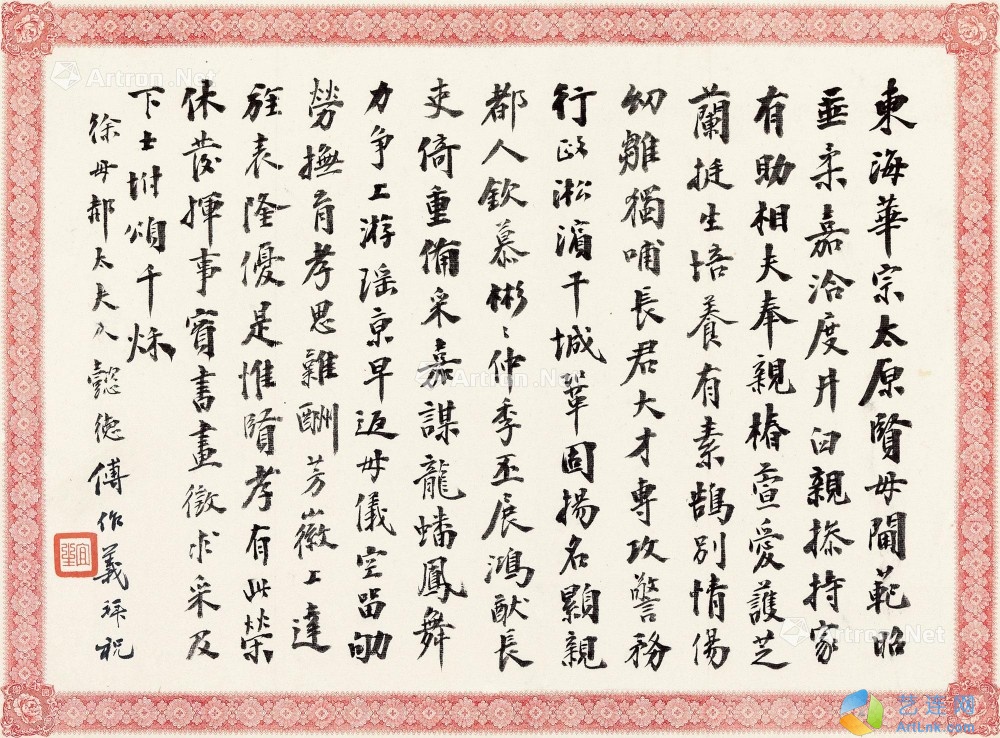 東海華宗太原賢母閫範昭
垂柔嘉洽度井臼親操持家
有助相夫奉親椿萱愛護芝
蘭挺生培養有素鵠別情傷
幼雛獨哺長君大才專攻警務
行政淞濱干城鞏固揚名顯親
都人欽慕彬彬仲季丕展鴻猷長
吏倚重備采嘉謀龍蟠鳳舞
力爭上游瑤京早返母儀空留劬
勞撫育孝思難酬芳徽上達
旌表隆優是惟賢孝有此榮
休發揮事實書畫徵求采及
下士拊頌千秌
徐母郝太夫人懿德傅作義拜祝
Artron.Net
艺连网
ArtLnk.com